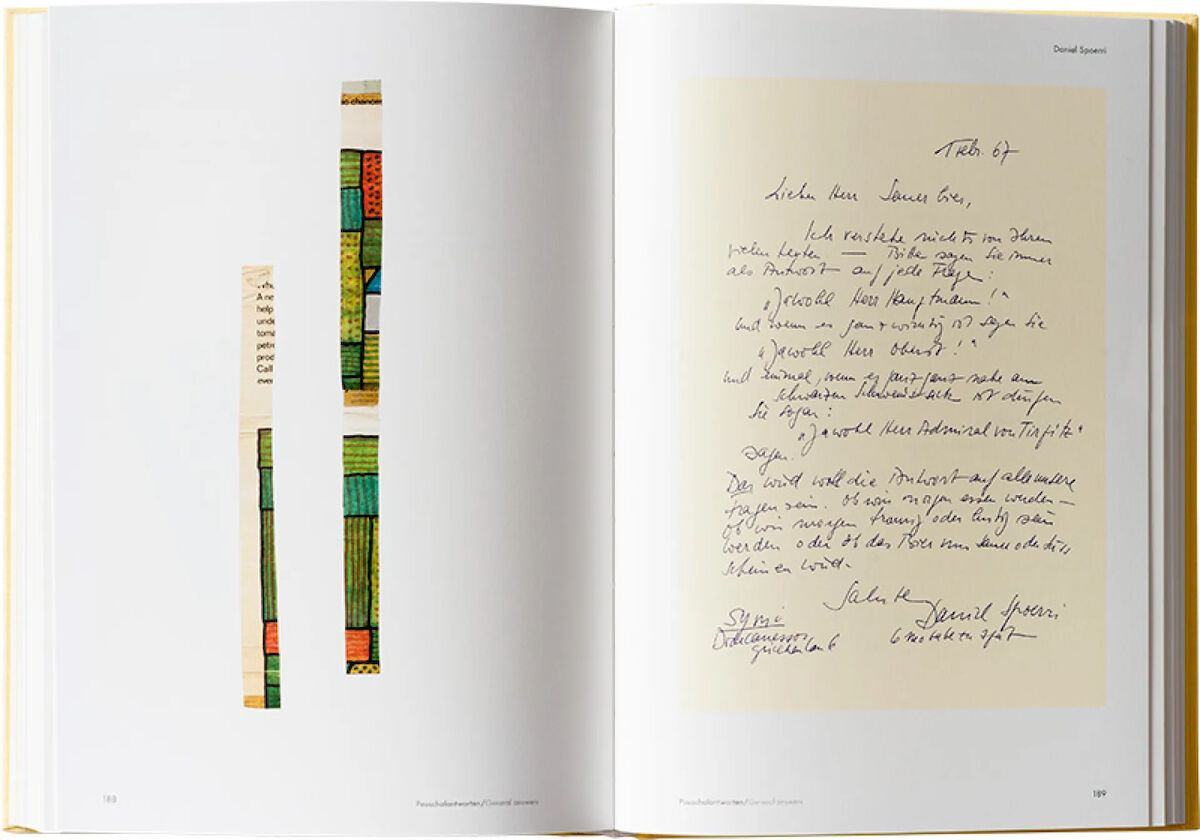 e chances
A ne
help
unde
toma
petro
prod
Call
ever
188
Pauschalantworten/General answers
Daniel Spoerri
1 Febr. 67
Lieber Herr Sauerbier,
Ich verstehe nichts von Ihren
vielen Texten. — Bitte sagen Sie immer
als Antwort auf jede Frage:
„Jawohl Herr Hauptmann!“
und wenn es ganz wichtig ist sagen Sie
„Jawohl Herr Oberst!“
und einmal, wenn es ganz ganz nahe am
schwarzen ist dürfen
Sie sogar:
„Jawohl Herr Admiral von Tirpitz“
sagen.
Das wird wohl die Antwort auf alle unsere
Fragen sein. Ob wir morgen essen werden —
ob wir morgen traurig oder lustig sein
werden oder ob das Bier uns sauer oder süss
scheinen wird.
Daniel Spoerri
Symi
Dodecanessos
Griechenland
6 Monate zu spät
Pauschalantworten/General answers
189